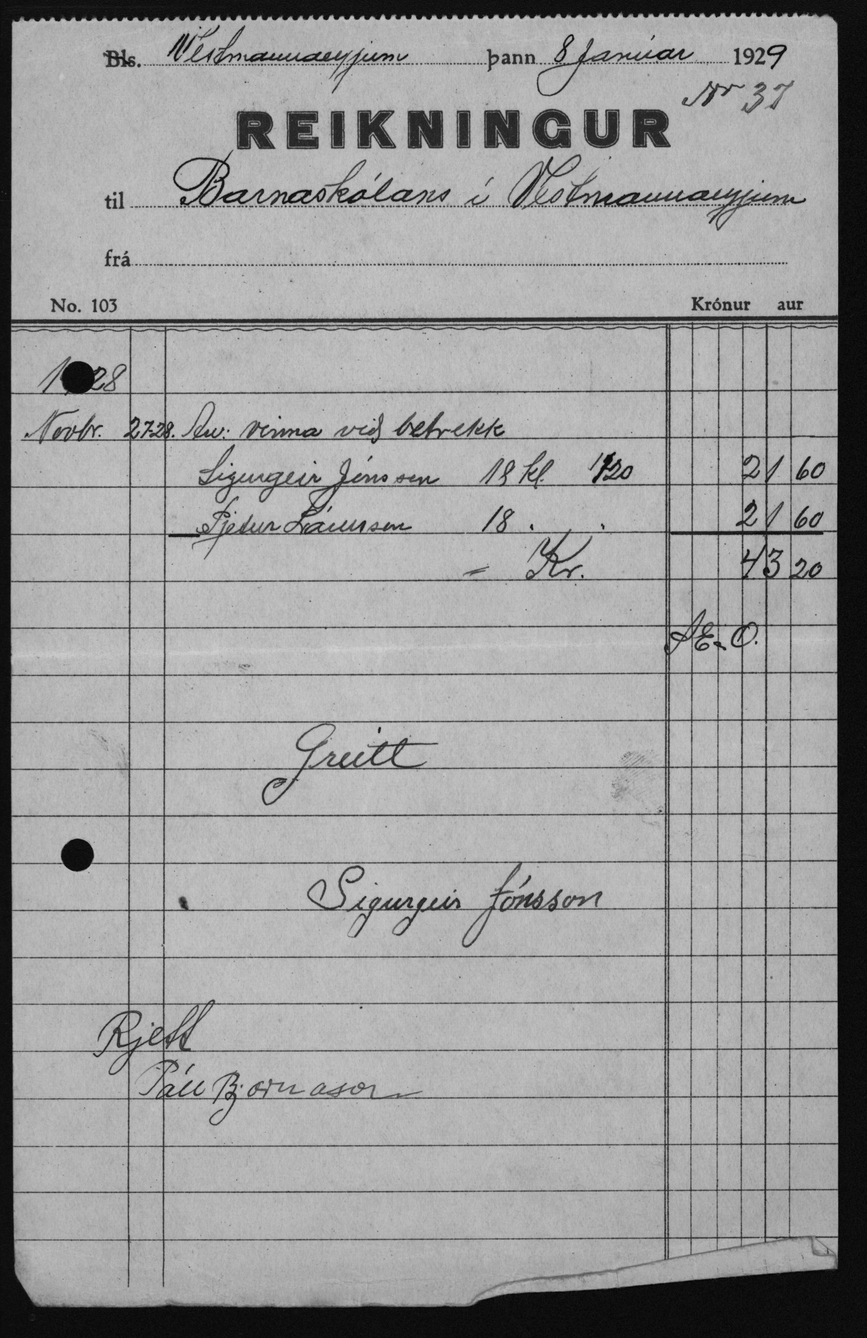 Bls. Vestmannaeyjum þann 8 Janúar 1929
Nr 37
REIKNINGUR
til Barnaskólans í Vestmannaeyjum
frá
No. 103 Krónur aur
1928
Novbr. 27-28. vinna við betrekk
Sigurgeir Jónsson 18 kl. 1/20 21 60
Pjetur Lárusson 18 . . 21 60
- Kr. 43 20
Greitt
Sigurgeir Jónsson
Rjett
Páll Bjarnason